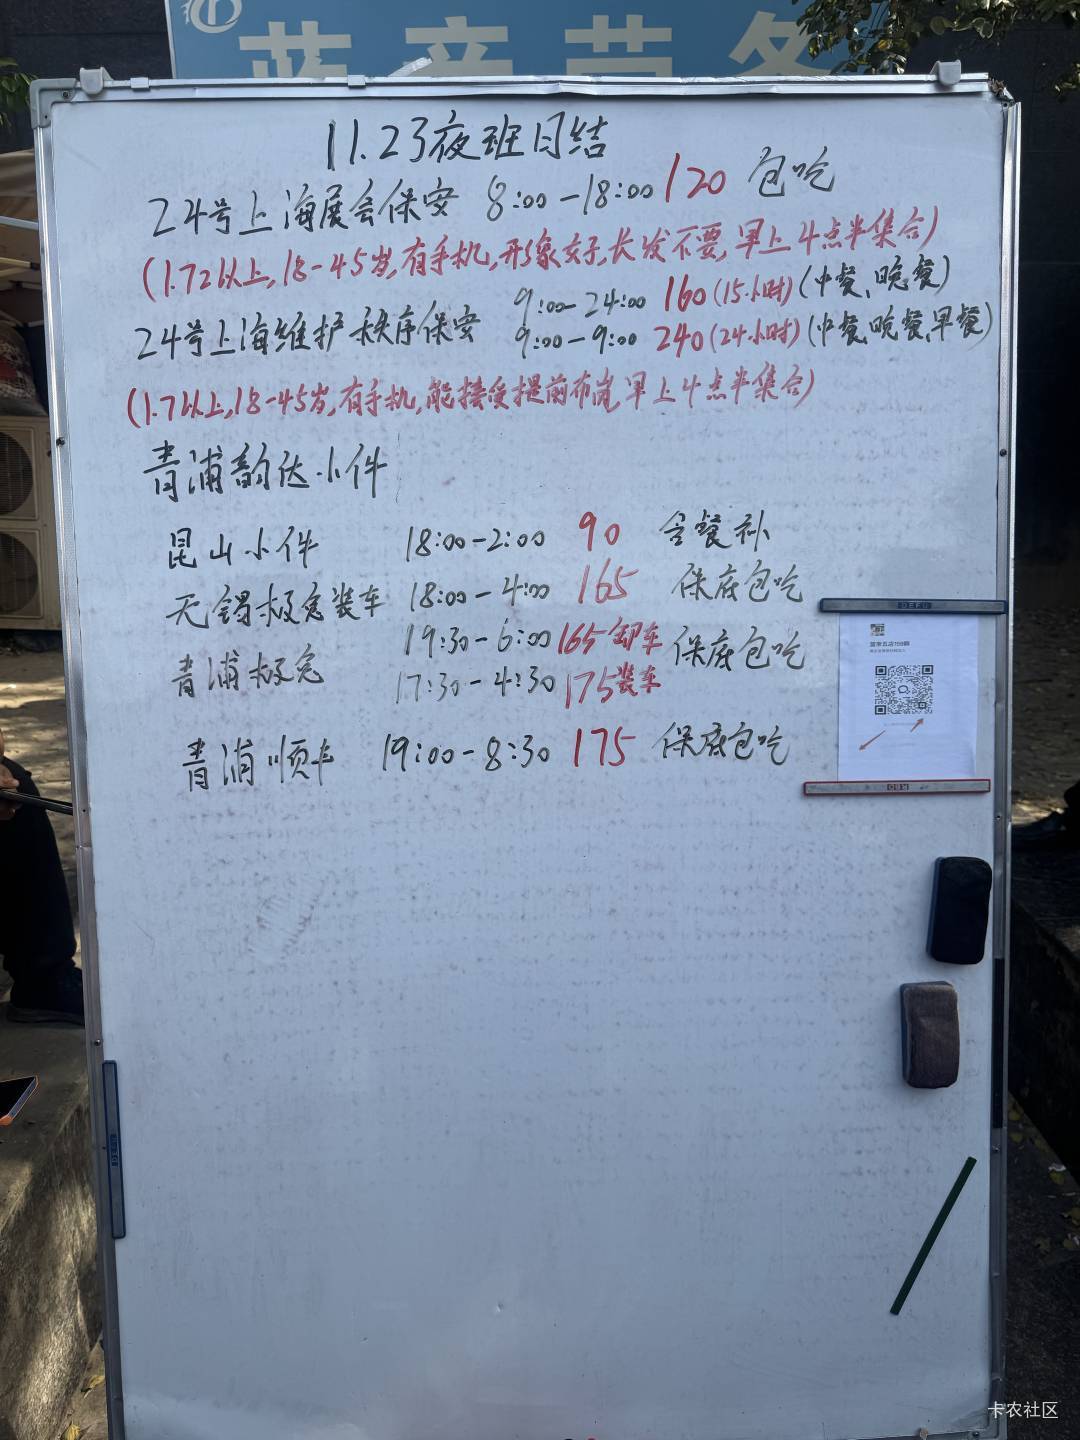 11.23夜班日结
24号上海展会保安 8:00-18:00 120 包吃
(1.72以上,18-45岁,有手机,形象好,长发不要,早上4点半集合)
9:00-24:00 160(15小时)(中餐、晚餐)
24号上海维护秩序保安
9:00-9:00 240(24小时)(中餐,晚餐,早餐)
(1.7以上,18-45岁,有手机,能接受提前布岗,早上4点半集合)
青浦韵达小件
昆山小件 18:00-2:00 90 含餐补
无锡极兔装车 18:00-4:00 165 保底包吃
19:30-6:00 165卸车
青浦极兔 保底包吃
17:30-4:30 175装车
青浦顺丰 19:00-8:30 175 保底包吃
卡农社区